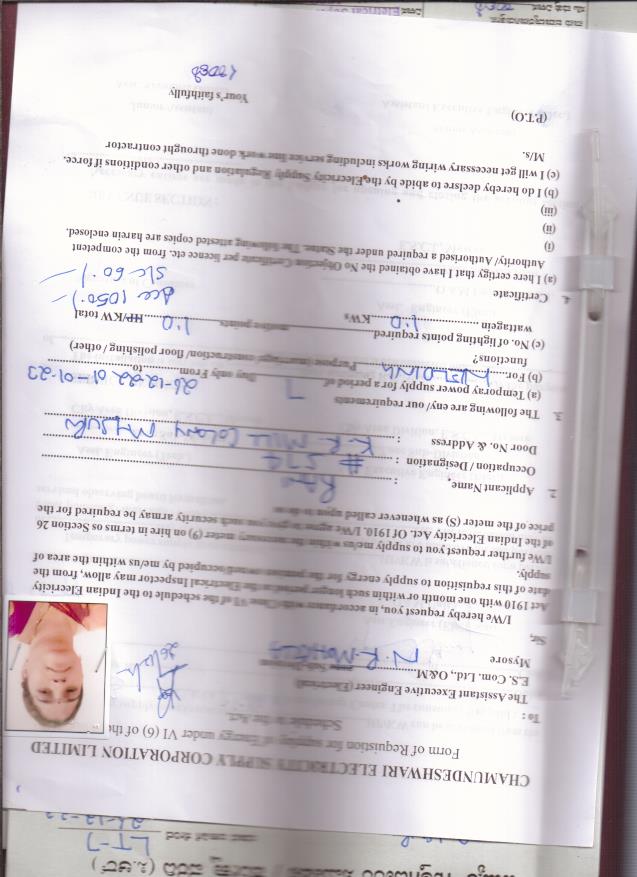 CHAMUNDESHWARI ELECTRICITY SUPPLY CORPORATION LIMITED
Form of Requisition for supplying of Energy under VI (6) of the
Schedule to the Act.
To :
The Assistant Executive Engineer (Electrical)
E.S. Com. Ltd., O&M
N.R. MOHALLA
Mysore
Sir,
I/We hereby request you, in accordance with Clause VI of the schedule to the Indian Electricity
Act 1910 with one month or within such longer period as the Electrical Inspector may allow, from the
date of this requisition to supply energy for the premises owned/occupied by me/us within the area of
supply.
I/We further request you to supply me/us within the necessary meter (9) on hire in terms os Section 26
of the Indian Elecricity Act. Of 1910. I/We agree to give you such security armay be required for the
price of the meter (S) as whenever called upon to do so
2. Applicant Name :
Occupation / Designation : # 574
Door No. & Address : K.R. MILL COLONY MYSURU
3. The following are eny/ our requirements
(a) Temporay power supply for a period of 7 Day only From 26-12-22 to 01-01-23
(b) For Purpose (marriage/ construction/ floor polishing / other)
functions?
(c) No. of lighting points required motive points HP/KW total
wattagein 1.0 KWs 1.0
4. Certificate Acc 1050 /-
S/c 60 /-
(a) I here certigy that I have obtained the No Objection Certificate per licence etc. from the competent
Authority/ Authorised a required under the Status. The following attested copies are harein enclosed.
(i)
(ii)
(iii)
(b) I do hereby declsre to abide by the Elecricity Supply Regulation and other conditions if force.
(c) I will get necessary wiring works including service line work done throught contractor
M/s.
(P.T.O)
Your's faithfully